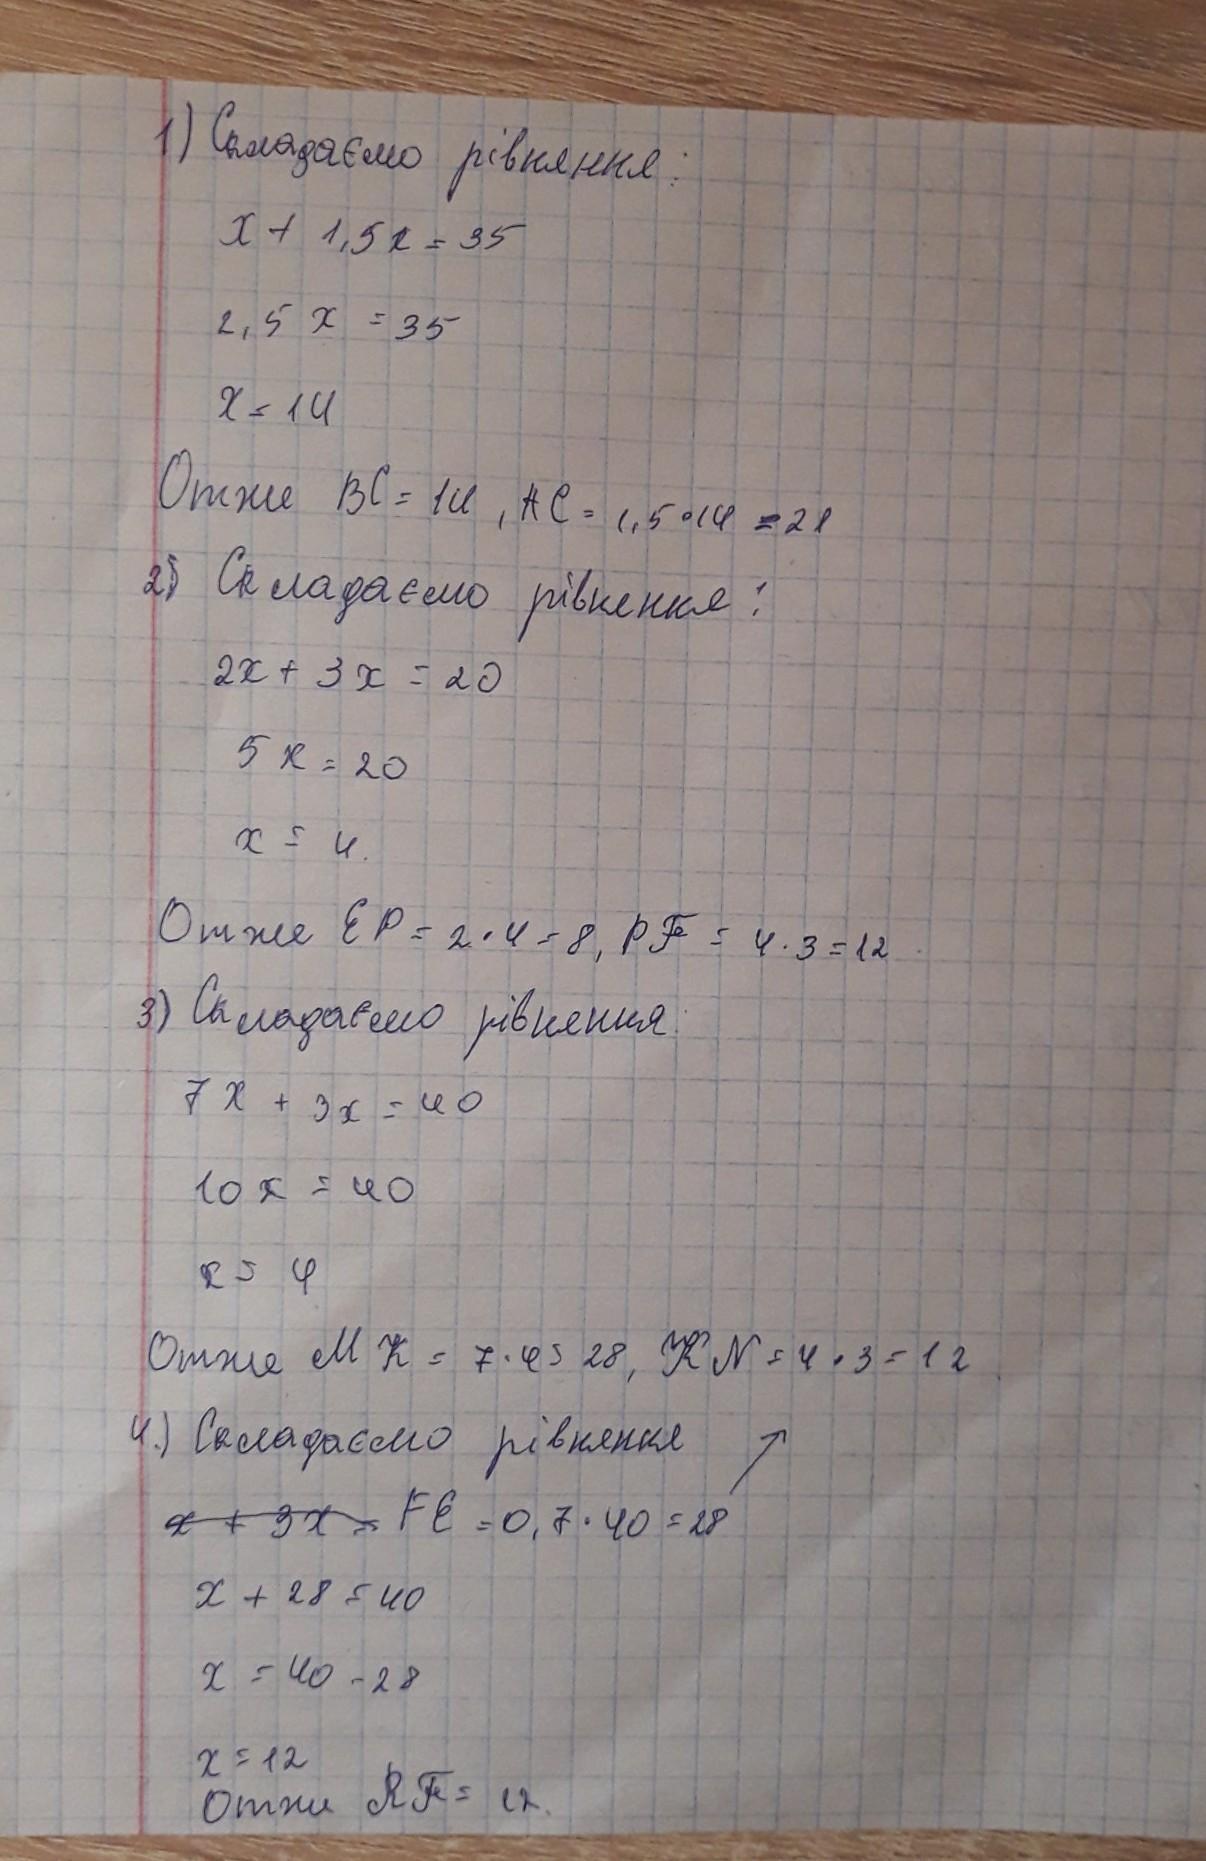 1) Складаємо рівняння:
x + 1,5x = 35
2,5x = 35
x = 14
Отже BC = 14, AC = 1,5·14 = 21
2) Складаємо рівняння:
2x + 3x = 20
5x = 20
x = 4.
Отже EP = 2·4 = 8, PF = 4·3 = 12.
3) Складаємо рівняння:
7x + 3x = 40
10x = 40
x = 4
Отже MK = 7·4 = 28, KN = 4·3 = 12
4.) Складаємо рівняння
x + 3x = FE = 0,7·40 = 28
x + 28 = 40
x = 40 - 28
x = 12
Отже RF = 12.